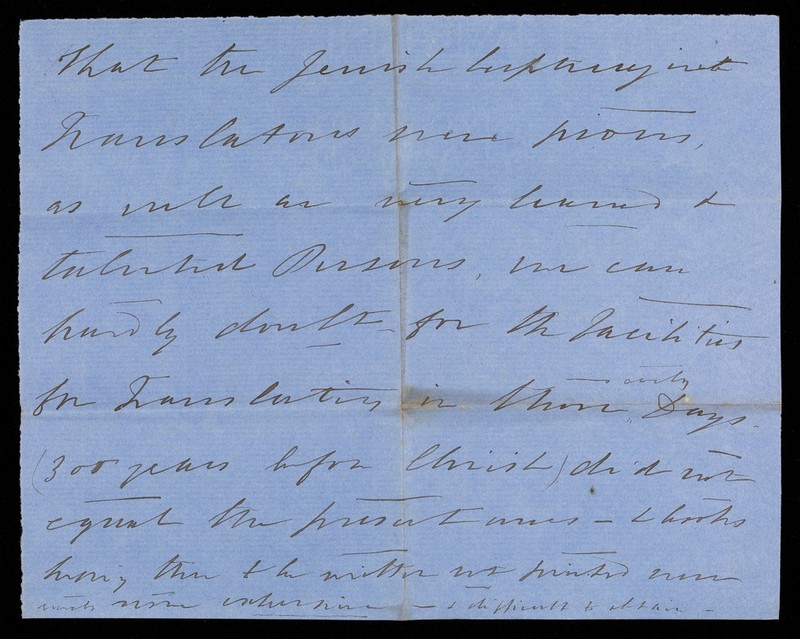 That the Jewish Septuagint
Translators were pious,
as well as very learned &
talented Persons, we can
hardly doubt - for the facilities
for Translating in those early Days -
(300 years before Christ) did not
equal the present ones - & books
having then to be written not printed were
much more expensive - & difficult to obtain -